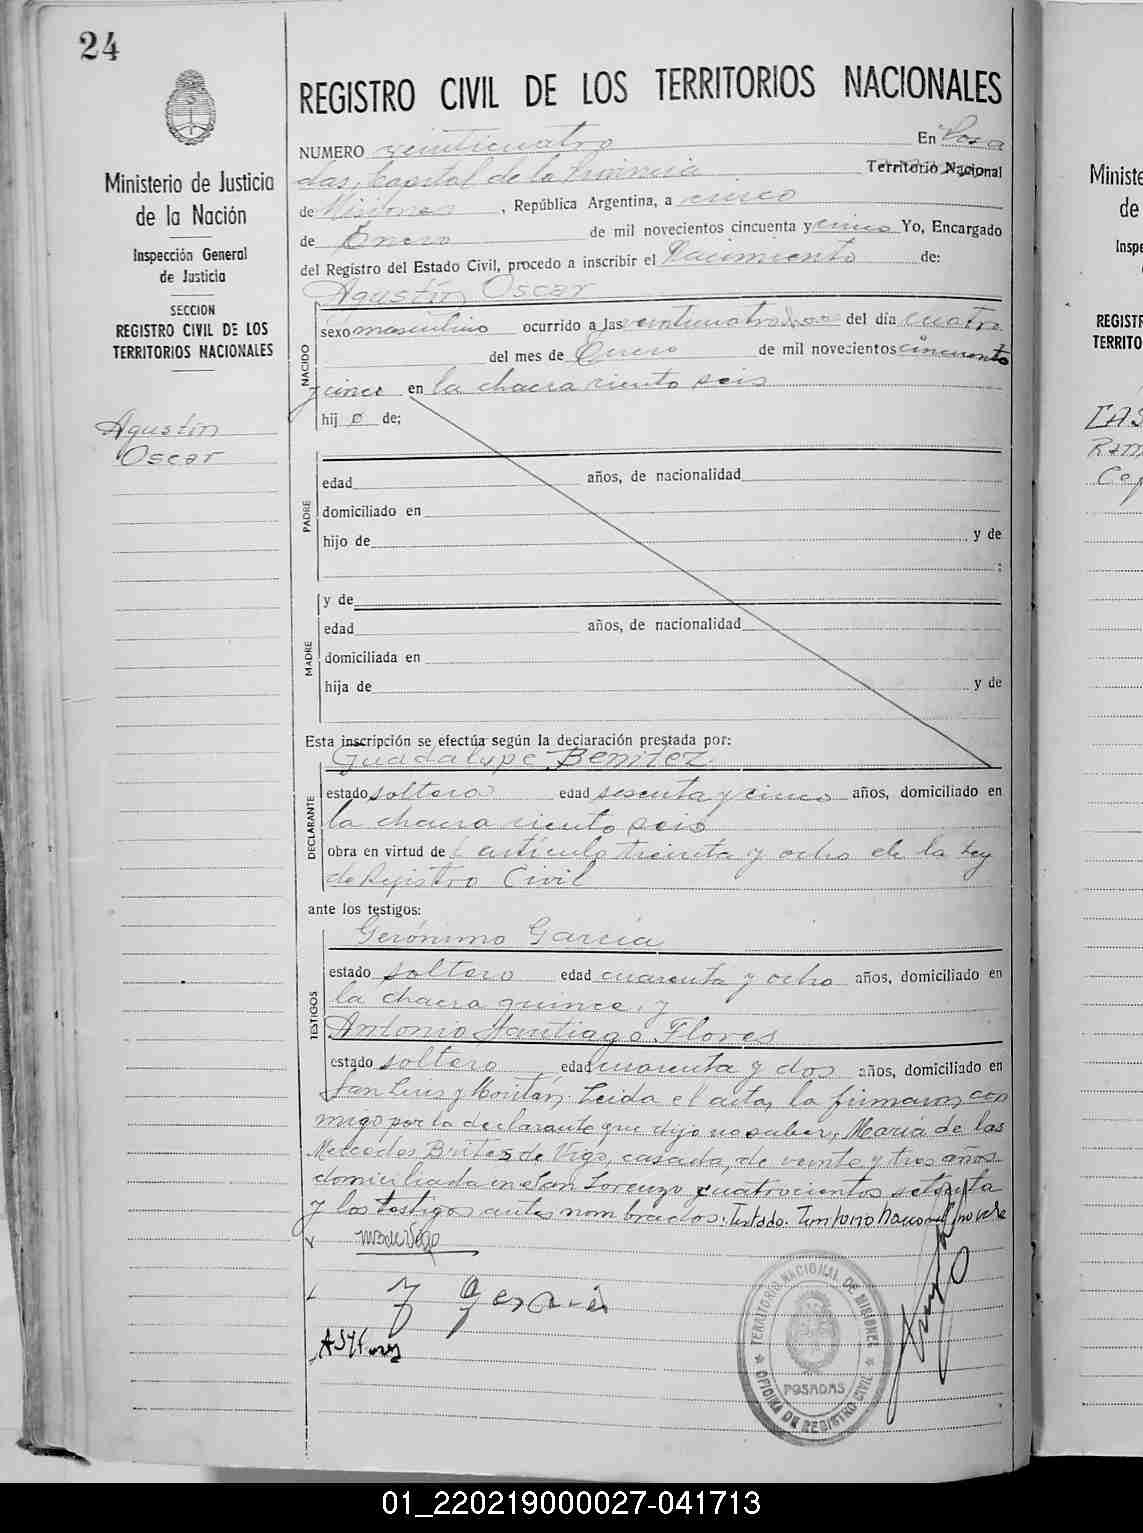 24
Ministerio de Justicia
de la Nación
Inspección General
de Justicia
SECCION
REGISTRO CIVIL DE LOS
TERRITORIOS NACIONALES
Agustín
Oscar
REGISTRO CIVIL DE LOS TERRITORIOS NACIONALES
NUMERO veinticuatro En Posa
das, Capital de la Provincia Territorio Nacional
de Misiones, República Argentina, a cinco
de Enero de mil novecientos cincuenta y cinco Yo, Encargado
del Registro del Estado Civil, procedo a inscribir el Nacimiento de:
Agustín Oscar
NACIDO
sexo masculino ocurrido a las veinticuatro horas del día cuatro
del mes de Enero de mil novecientos cincuenta
y cinco en la chacra ciento seis
hij o de;
PADRE
edad años, de nacionalidad
domiciliado en
hijo de y de
;
MADRE
y de
edad años, de nacionalidad
domiciliada en
hija de y de
Esta inscripción se efectúa según la declaración prestada por:
Guadalupe Benitez
DECLARANTE
estado soltera edad sesenta y cinco años, domiciliado en
la chacra ciento seis
obra en virtud del artículo treinta y ocho de la Ley
de Registro Civil
ante los testigos:
TESTIGOS
Gerónimo García
estado soltero edad cuarenta y ocho años, domiciliado en
la chacra quince, y
Antonio Santiago Flores
estado soltero edad cuarenta y dos años, domiciliado en
San Luis y Leida el acta, la firmaron con
migo por la declarante que dijo no saber, María de las
Mercedes Brites de Vigo, casada, de veinte y tres años
domiciliada en San Lorenzo cuatrocientos setenta
y los testigos antes nombrados: Testado: Territorio Nacional no vale
x
J Garcia
ASFlores
TERRITORIO NACIONAL DE MISIONES
POSADAS
OFICINA DE REGISTRO CIVIL
Ministe
de
Inspe
REGISTR
TERRITO
01_220219000027-041713